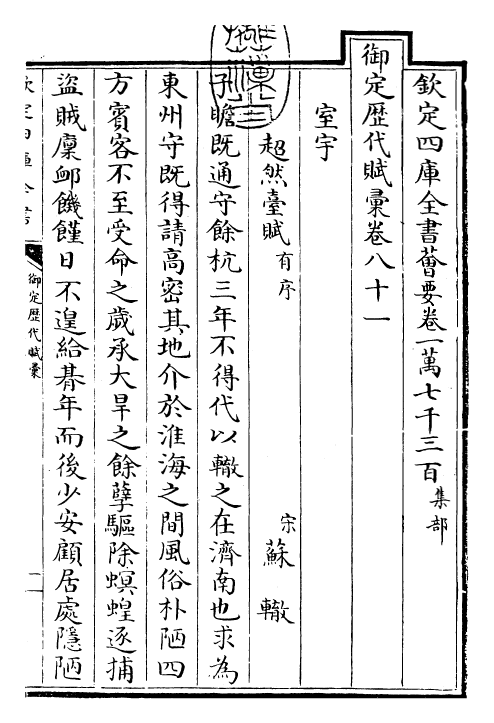 欽定四庫全書薈要卷一萬七千三百集部
御定歷代賦彙卷八十一
室宇
超然臺賦有序 宋 蘇轍
子瞻既通守餘杭三年不得代以轍之在濟南也求為
東州守既得請高密其地介於淮海之間風俗朴陋四
方賓客不至受命之歲承大旱之餘孽驅除螟蝗逐捕
盜賊廩卹饑饉日不遑給朞年而後少安顧居處隱陋
御定歷代賦彙
一